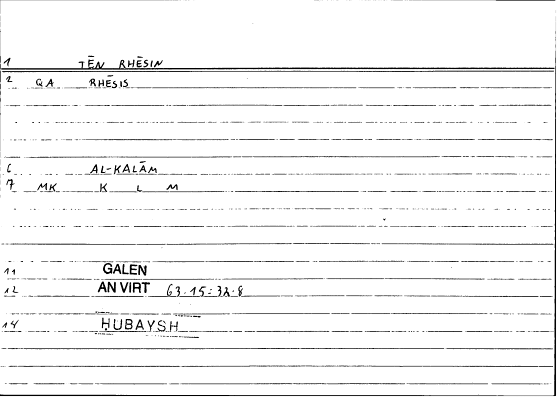 1 TĒN RHĒSIN
2 QA RHĒSIS
6 AL-KALĀM
7 MK K L M
11 GALEN
12 AN VIRT 63.15=32.8
14 ḤUBAYSH